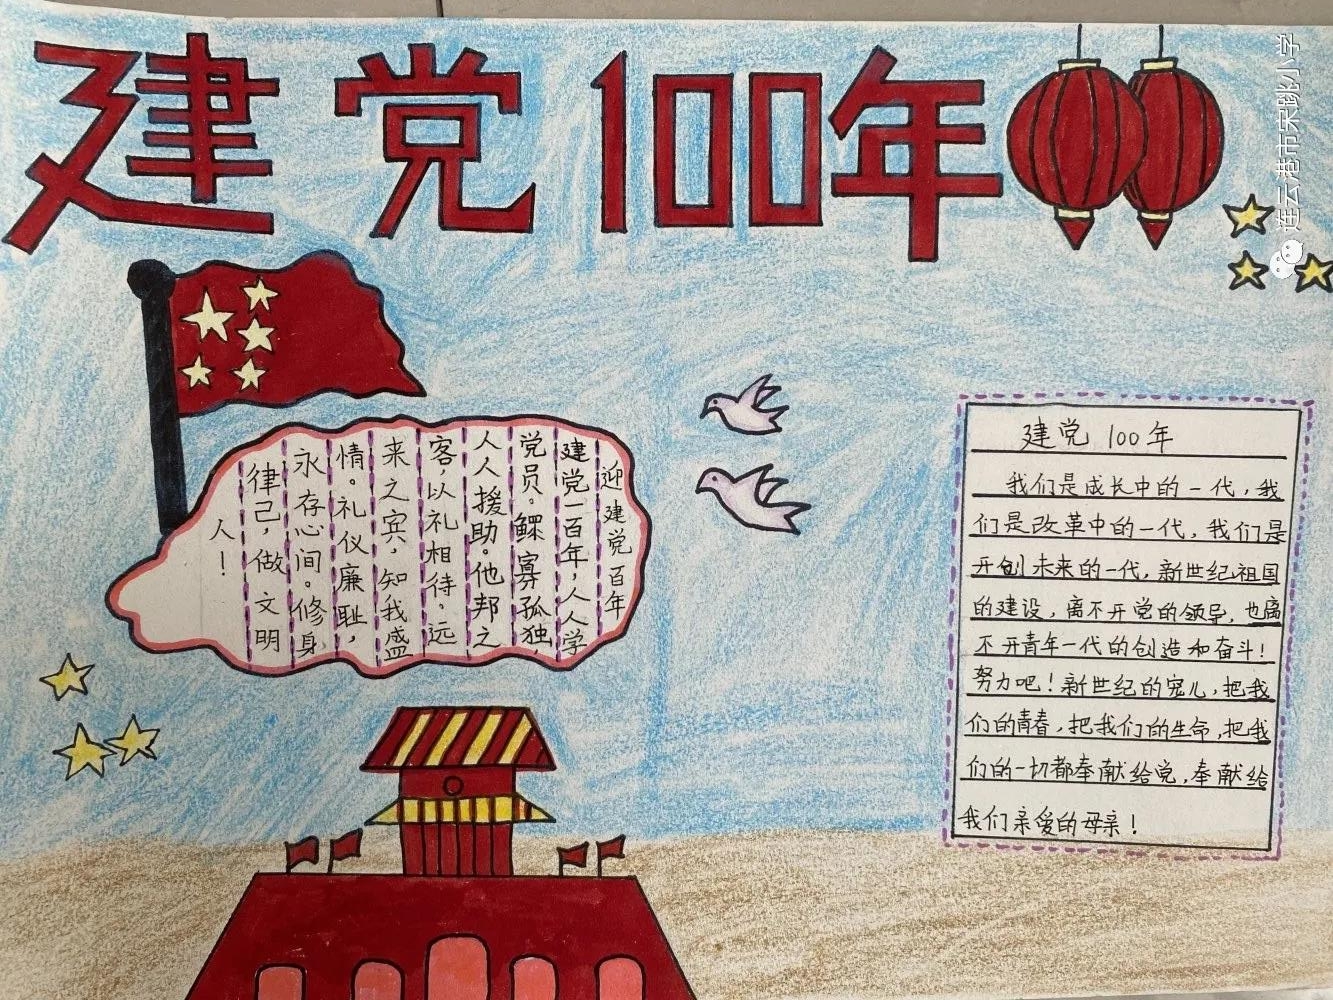 建党100年
迎建党百年
建党一百年，人人学
党员。鳏寡孤独，
人人援助。他邦之
客，以礼相待。远
来之宾，知我盛
情。礼仪廉耻，
永存心间。修身
律己，做文明
人！
建党 100年
我们是成长中的一代，我
们是改革中的一代，我们是
开创未来的一代，新世纪祖国
的建设，离不开党的领导，也离
不开青年一代的创造和奋斗！
努力吧！新世纪的宠儿，把我
们的青春，把我们的生命，把我
们的一切都奉献给党，奉献给
我们亲爱的母亲！
连云港市宋跳小学